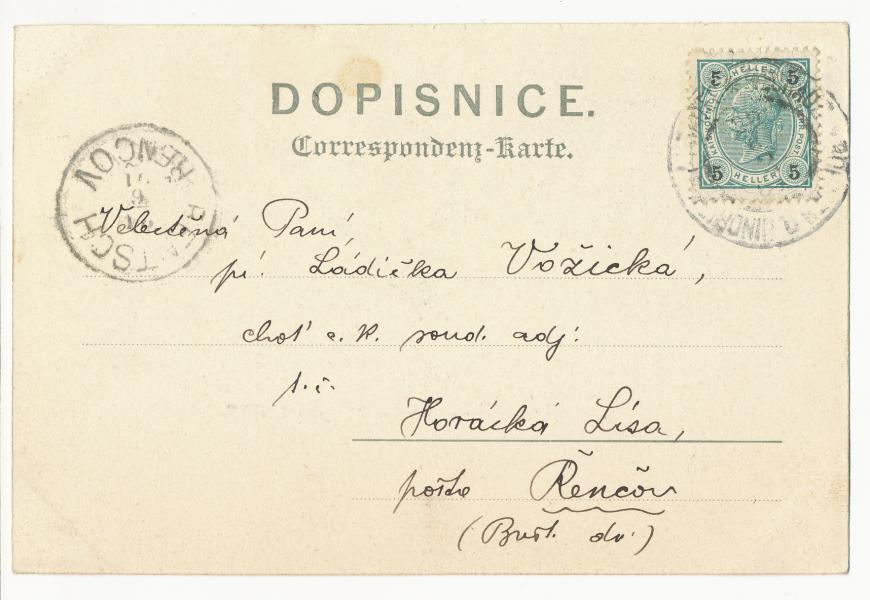 DOPISNICE.
Correspondenz-Karte.
5 HELLER 5
5 HELLER 5
ŘENČOV
RENTSCH
Velectěná Paní,
pí. Ládička Vožická,
choť c. k. soud. adj.
t. č.
Horácká Lísa,
pošta Řenčov
(Bušt. dv.)